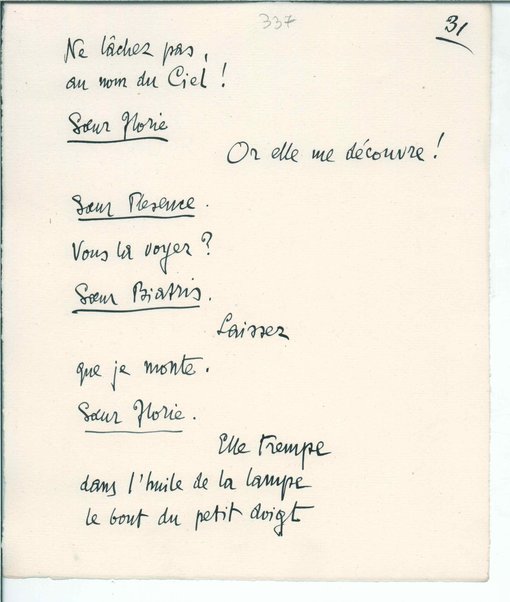 337
31
Ne lâchez pas,
au nom du Ciel !
Sœur Florie
Or elle me découvre !
Sœur Plesence.
Vous la voyez ?
Sœur Biatris.
Laissez
que je monte.
Sœur Florie.
Elle trempe
dans l'huile de la lampe
le bout du petit doigt